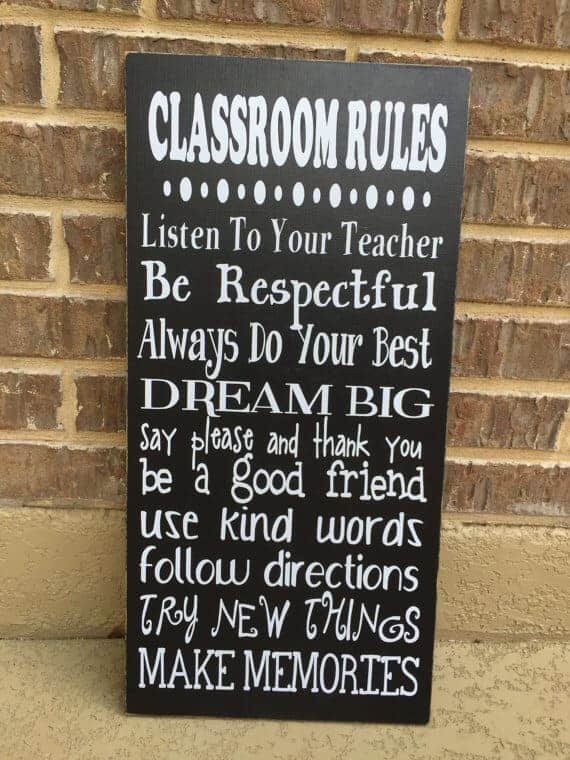 CLASSROOM RULES
Listen To Your Teacher
Be Respectful
Always Do Your Best
DREAM BIG
say please and thank you
be a good friend
use kind words
follow directions
TRY NEW THINGS
MAKE MEMORIES